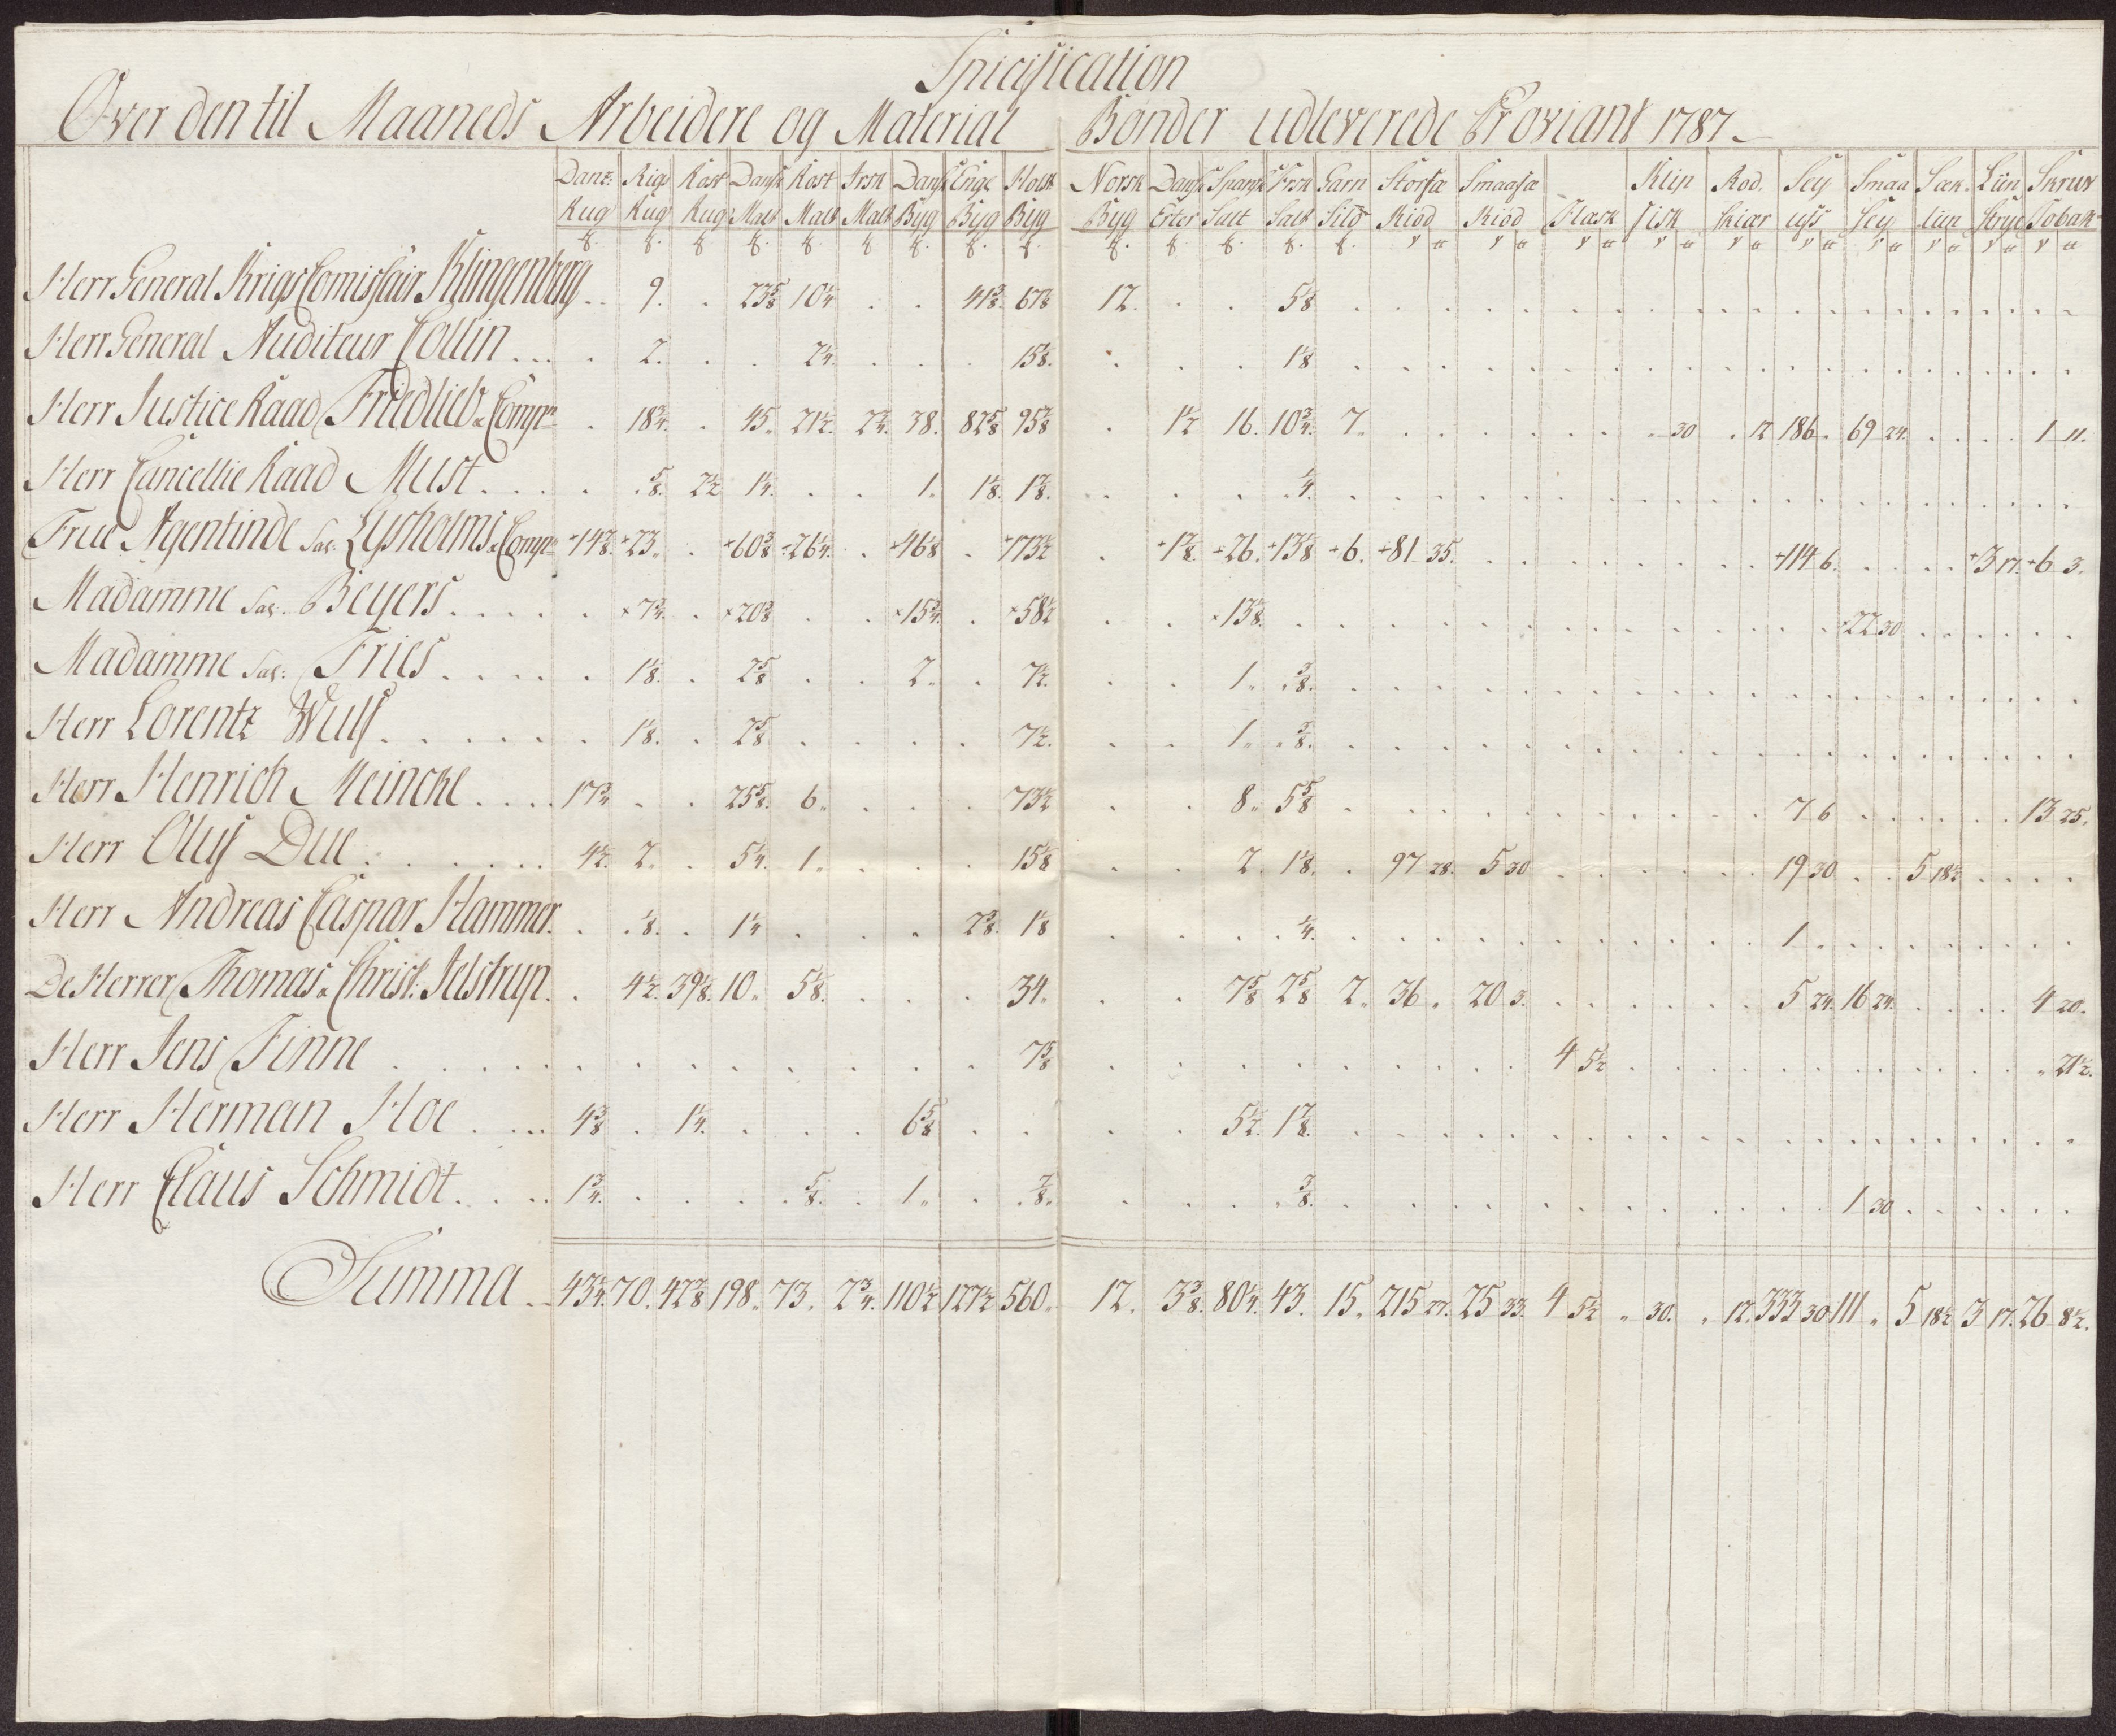 Specification
Over den til Maaneds Arbeidere og Material Bønder udleverede Proviant 1787
Danz: Rigs Rost Dansk Rost Irsk Dansk Engl Holst Norsk Dansk Spansk Frsk Garn Storsæ Smaasæ Klip Rod. Sey Smaa Sæk- Liin Skruv
Rug Rug Rug Malt Malt Malt Byg Byg Byg Byg Erter Salt Salt Sild Kiød Kiød Flæsk Fisk skiær uss Sey liin Stryc Tobak
Herr General Krigs Comissair Klingenberg 9. 23 5/8 10 1/4 41 3/8 67 7/8 12. 5 1/8
Herr General Auditeur Collin 2. 2 1/4 15 1/8 1 1/8
Herr Justice Raad Friedlieb & Comp 18 3/4 45 21 1/2 2 3/4 38. 82 5/8 95 7/8 1 1/2 16 10 3/4 7 30 12 186 69 24 1 11.
Herr Cancellie Raad Must 5/8 2 1/2 1 1/4 1 1 1/8 1 7/8 1/4
Frue Agentinde Sal: Lysholms & Comp +14 7/8 +23 +60 3/8 +26 1/4 +46 1/8 +173 1/2 +1 7/8 +26 +13 1/8 +6. +81 35. +114 6. +3 17. +6 3.
Madamme Sal: Beyers ×7 3/4 ×20 3/8 ×15 3/4 ×58 1/2 ×13 1/8 ×22 30
Madamme Sal: Fries 1 1/8 2 5/8 2 7 1/2 1 3/8
Herr Lorentz Wulf 1 1/8 2 5/8 7 1/2 1 3/8
Herr Henrich Meincke 17 3/4 25 5/8 6 73 1/2 8 5 5/8 7 6 13 25.
Herr Oluf Due 4 1/2 2 5 1/4 1 15 1/8 2 1 1/8 97 28. 5 30 19 30 5 18 1/2
Herr Andreas Caspar Hammer 1/8 1 1/4 2 3/8 1 1/8 1/4 1
De Herrer Thomas & Christ: Jelstrup 4 1/2 39 1/8 10 5 1/8 34 7 5/8 2 5/8 2 36 20 3. 5 24. 16 24. 4 20.
Herr Jens Finne 7 5/8 4 5 1/2 21 1/2
Herr Herman Hoe 4 3/8 1 1/4 6 5/8 5 1/2 1 7/8
Herr Claus Schmidt 1 3/4 5/8 1 7/8 3/8 1 30
Summa 43 1/4 70. 42 7/8 198 73. 2 3/4 110 1/2 127 1/2 560 12. 3 3/8 80 1/4 43. 15 215 27. 25 33. 4 5 1/2 30. 12. 333 30 111 5 18 1/2 3 17. 26 8 1/2